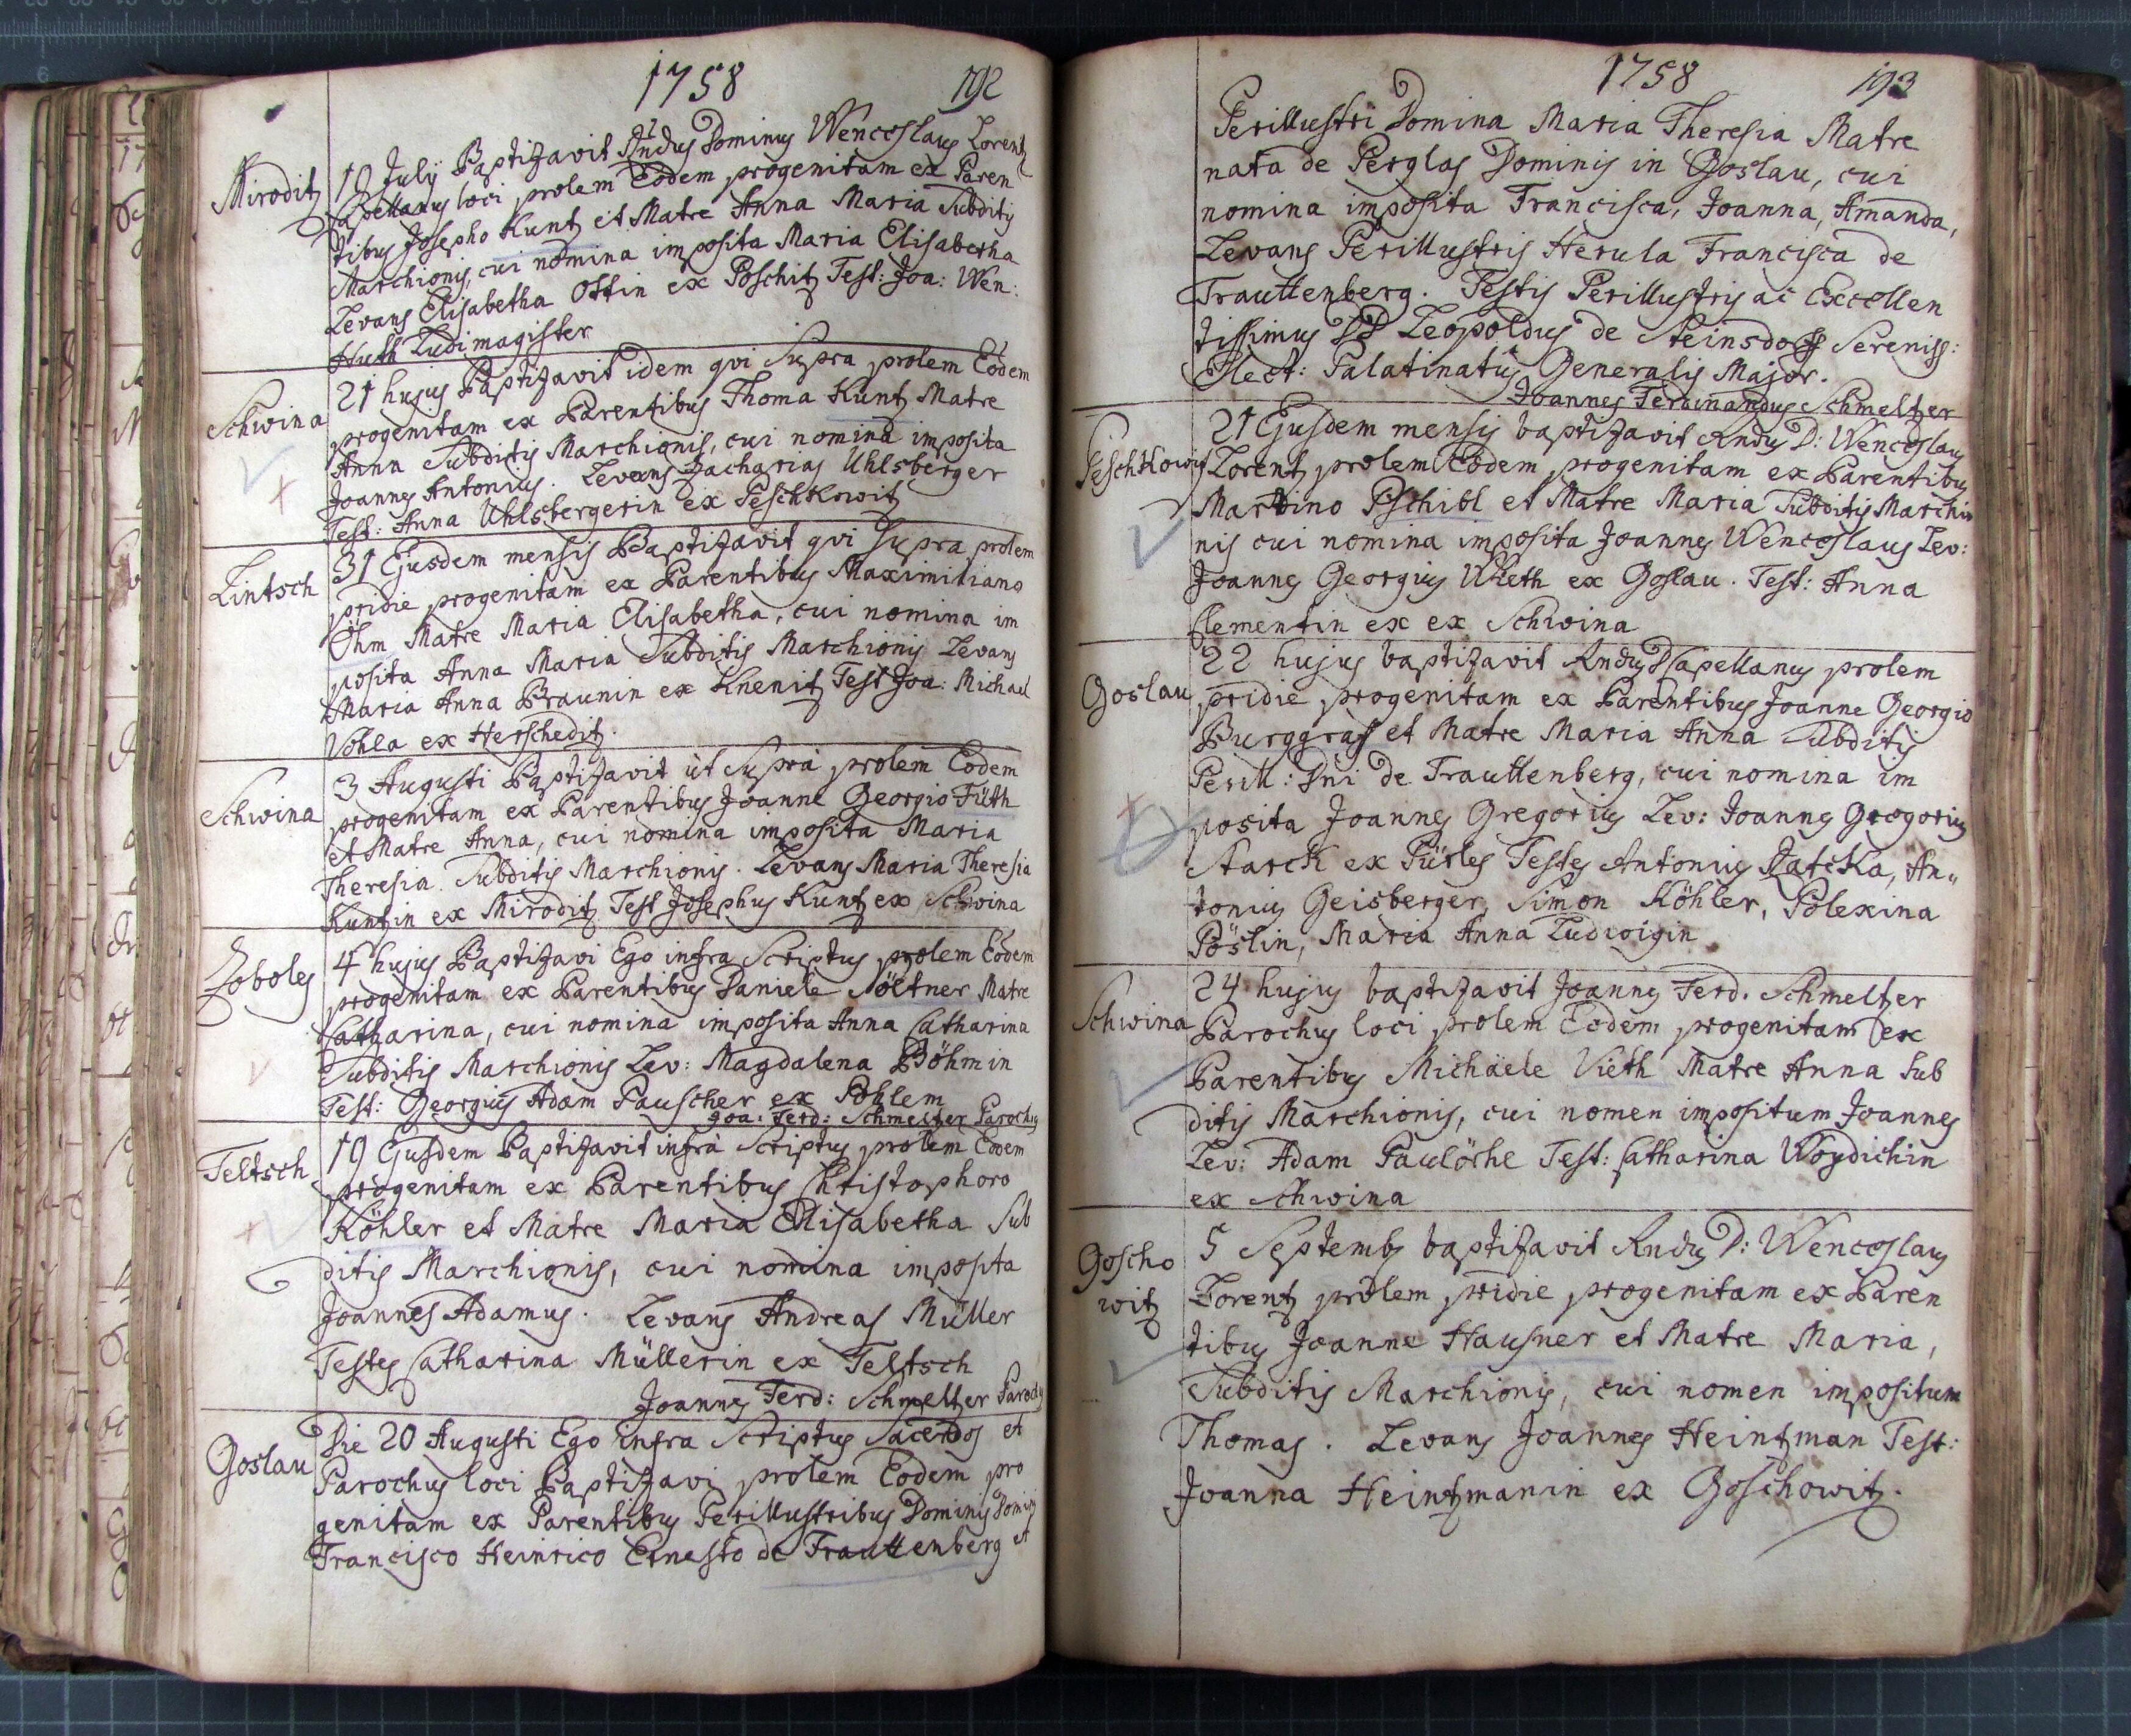 1758
192
Miroditz
19 July Baptizavit Rndus Dominus Wenceslaus Lorentz
Capellanus loci prolem Eodem progenitam ex Paren
tibus Josepho Kuntz et Matre Anna Maria Subditis
Marchionis, cui nomina imposita Maria Elisabetha
Levans Elisabetha Ottin ex Poschitz Test: Joa: Wen:
Huth Ludimagister
Schwina
21 hujus Baptizavit idem qui Supra prolem Eodem
progenitam ex Parentibus Thoma Kuntz Matre
Anna Subditis Marchionis, cui nomina imposita
Joannes Antonius. Levans Zacharias Uhlsberger
Test: Anna Uhlsbergerin ex Peschkowitz
Lintsch
31 Ejusdem mensis Baptizavit qui Supra prolem
pridie progenitam ex Parentibus Maximiliano
Öhm Matre Maria Elisabetha, cui nomina im
posita Anna Maria Subditis Marchionis Levans
Maria Anna Braunin ex Knenitz Test Joa: Michael
Vohla ex Herscheditz.
Schwina
3 Augusti Baptizavit ut Supra prolem Eodem
progenitam ex Parentibus Joanne Georgio Füth
et Matre Anna, cui nomina imposita Maria
Theresia. Subditis Marchionis. Levans Maria Theresia
Kuntzin ex Miroditz Test Josephus Kuntz ex Schwina
Zoboles
4 hujus Baptizavi Ego infra Scriptus prolem Eodem
progenitam ex Parentibus Daniele Nöltner Matre
Catharina, cui nomina imposita Anna Catharina
Subditis Marchionis Lev: Magdalena Böhmin
Test: Georgius Adam Pauscher ex Pohlem
Joa: Ferd: Schmeltzer Parochus
Teltsch
19 Ejusdem Baptizavit infra Scriptus prolem Eodem
progenitam ex Parentibus Christophoro
Köhler et Matre Maria Elisabetha Sub
ditis Marchionis, cui nomina imposita
Joannes Adamus. Levans Andreas Müller
Testes Catharina Müllerin ex Teltsch
Joannes Ferd: Schmeltzer Parochus
Goslau
Die 20 Augusti Ego infra Scriptus Sacerdos et
Parochus loci Baptizavi prolem Eodem pro
genitam ex Parentibus Perillustribus Dominis Dominis
Francisco Heinrico Ernesto de Trauttenberg et
1758
193
Perillustri Domina Maria Theresia Matre
nata de Perglas Dominis in Goslau, cui
nomina imposita Francisca, Joanna, Amanda,
Levans Perillustris Herula Francisca de
Trauttenberg. Testis Perillustris ac Excellen
tissimus DD Leopoldus de Steinsdorff Sereniss:
Elect: Palatinatus Generalis Major.
Joannes Ferdinandus Schmeltzer
Peschkowitz
21 Ejusdem mensis baptizavit Rndus D: Wenceslaus
Lorentz prolem Eodem progenitam ex Parentibus
Martino Pschibl et Matre Maria Subditis Marchio
nis cui nomina imposita Joannes Wenceslaus Lev:
Joannes Georgius Vieth ex Goslau. Test: Anna
Clementin ex ex Schwina
Goslau
22 hujus baptizavit Rndus D Capellanus prolem
pridie progenitam ex Parentibus Joanne Georgio
Burggraff et Matre Maria Anna Subditis
Perill: Dni de Trauttenberg, cui nomina im
posita Joannes Gregorius Lev: Joannes Gregorius
Starck ex Pürles Testes Antonius Zatcka, An„
tonius Geisberger, Simon Köhler, Polexina
Pöslin, Maria Anna Ludwigin
Schwina
24 hujus baptizavit Joannes Ferd. Schmeltzer
Parochus loci prolem Eodem progenitam ex
Parentibus Michaele Vieth Matre Anna Sub
ditis Marchionis, cui nomen impositum Joannes
Lev: Adam Paulöhe Test: Catharina Woydichin
ex Schwina
Goscho
witz
5 Septembs baptizavit Rndus D: Wenceslaus
Lorentz prolem pridie progenitam ex Paren
tibus Joanne Hausner et Matre Maria,
Subditis Marchionis, cui nomen impositum
Thomas. Levans Joannes Heintzman Test:
Joanna Heintzmanin ex Goschowitz.